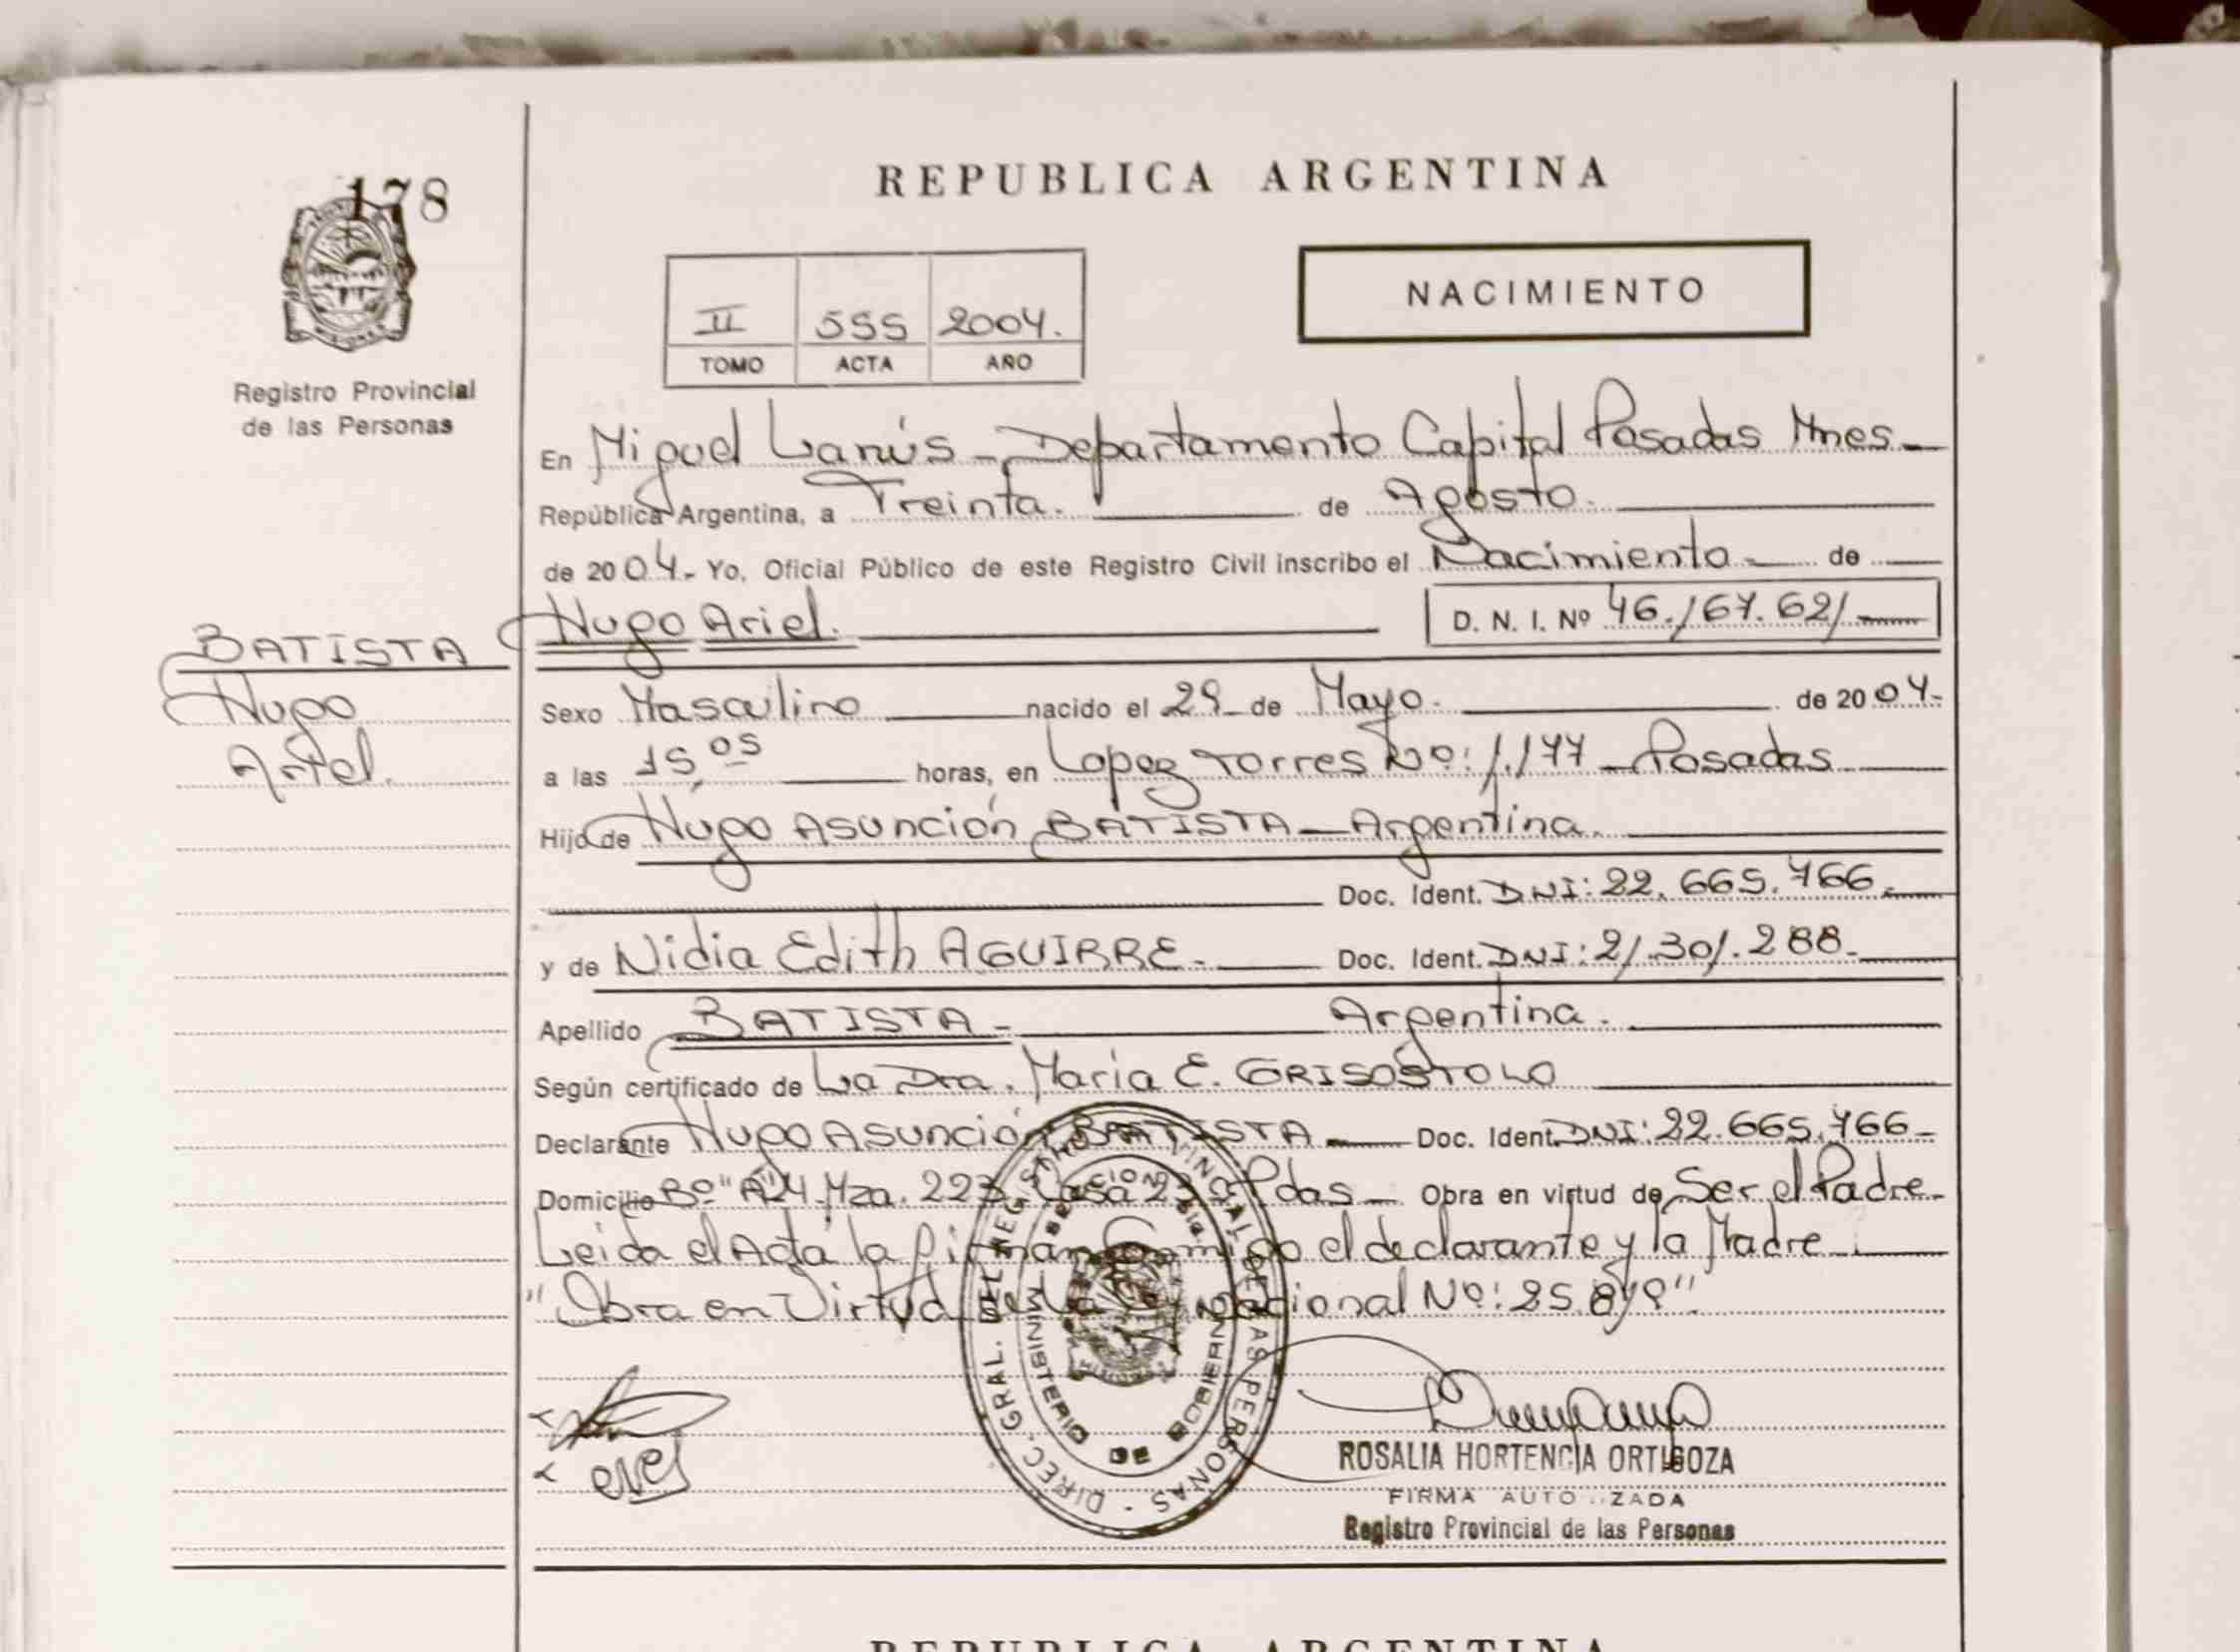 178
REPUBLICA ARGENTINA
NACIMIENTO
II 555 2004.
TOMO ACTA AÑO
Registro Provincial
de las Personas
En Miguel Lanús - Departamento Capital Posadas Mnes-
República Argentina, a Treinta. de Agosto.
de 2004.- Yo, Oficial Público de este Registro Civil inscribo el Nacimiento - de
Hugo Ariel. D. N. I. Nº 46.167.621
BATISTA
Hugo
Ariel.
Sexo Masculino nacido el 29 de Mayo. de 2004.-
a las 15,05 horas, en Lopez Torres Nº: 1.177 - Posadas
Hijo de Hugo Asunción BATISTA - Argentina.
Doc. Ident. DNI: 22.665.766.
y de Nidia Edith AGUIRRE. Doc. Ident. DNI: 21.301.288.
Apellido BATISTA - Argentina.
Según certificado de La Dra. María E. GRISOSTOLO
Declarante Hugo Asunción BATISTA - Doc. Ident. DNI: 22.665.766-
Domicilio Bº "A"4 Mza. 223 Casa Pdas - Obra en virtud de Ser el Padre-
Leída el Acta la firman conmigo el declarante y la Madre
"Obra en Virtud de la Ley Nacional Nº: 25.819".
DIREC. GRAL. DEL REGISTRO PROVINCIAL DE LAS PERSONAS
MINISTERIO DE GOBIERNO
ROSALIA HORTENCIA ORTIGOZA
FIRMA AUTO ZADA
Registro Provincial de las Personas
REPUBLICA ARGENTINA